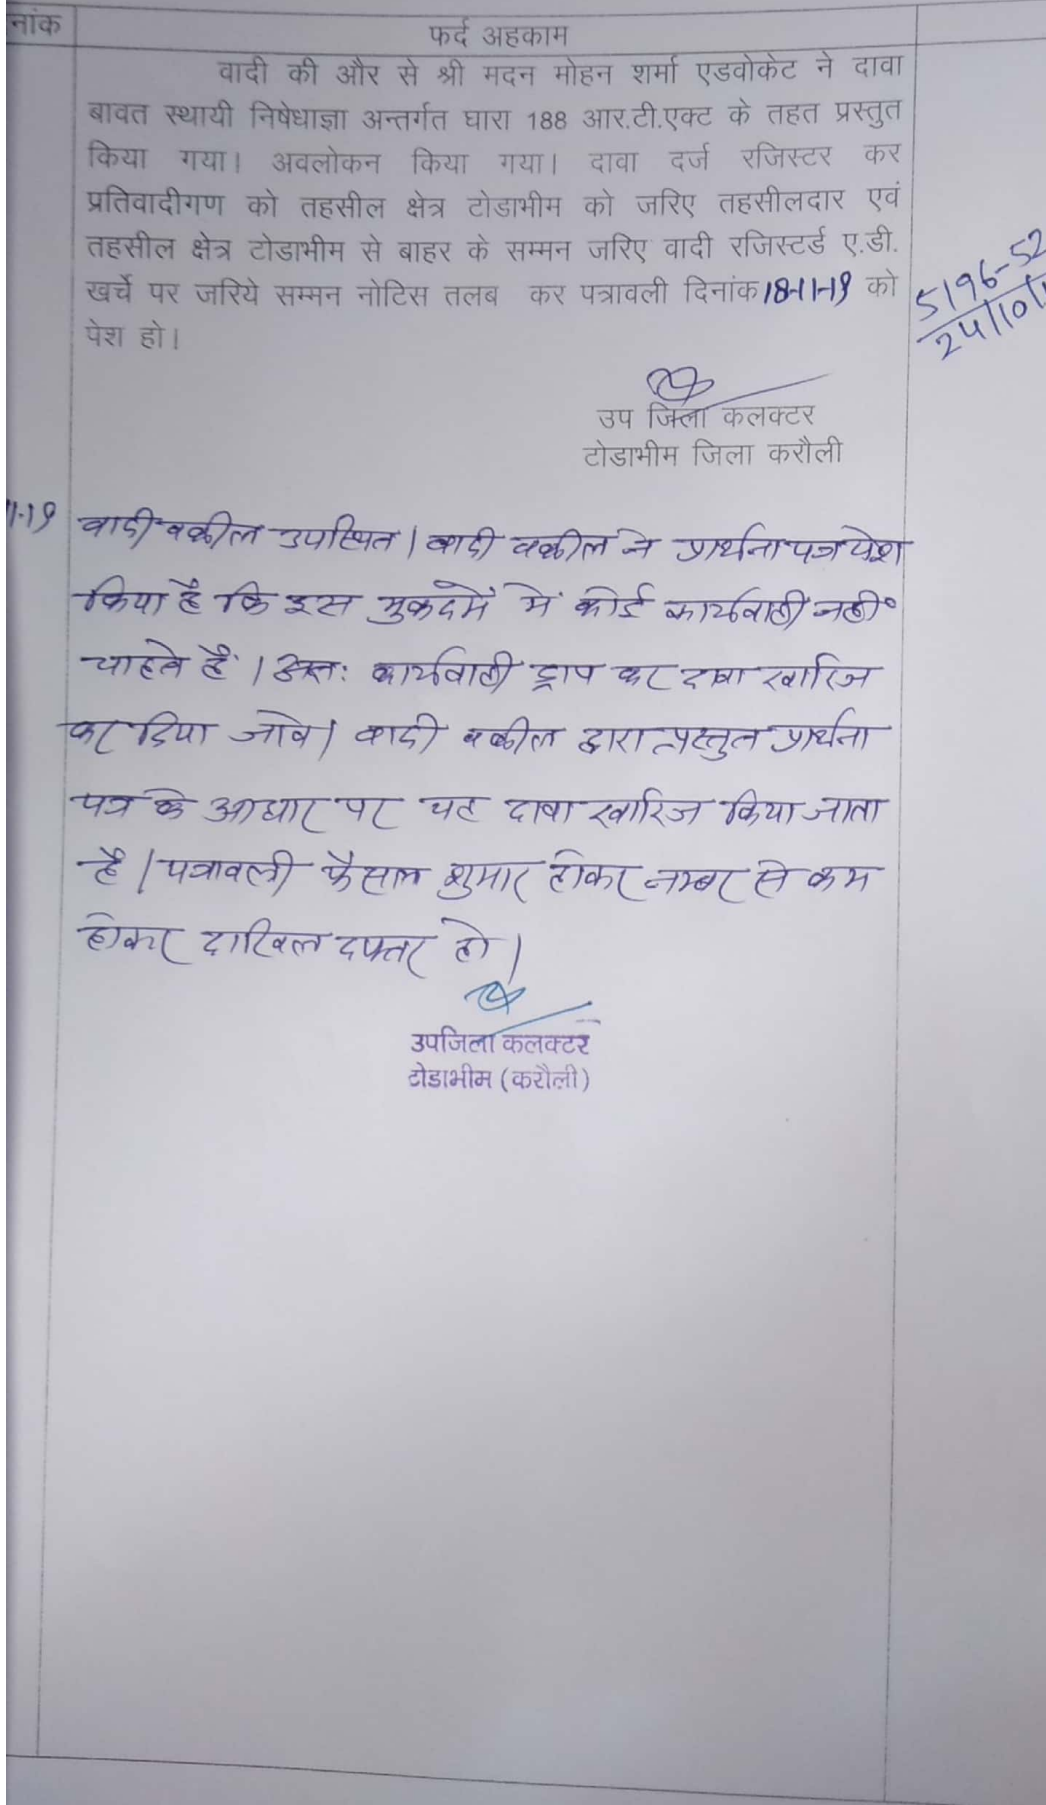 नांक
फर्द अहकाम
वादी की और से श्री मदन मोहन शर्मा एडवोकेट ने दावा
बावत स्थायी निषेधाज्ञा अन्तर्गत घारा 188 आर.टी.एक्ट के तहत प्रस्तुत
किया गया। अवलोकन किया गया। दावा दर्ज रजिस्टर कर
प्रतिवादीगण को तहसील क्षेत्र टोडाभीम को जरिए तहसीलदार एवं
तहसील क्षेत्र टोडाभीम से बाहर के सम्मन जरिए वादी रजिस्टर्ड ए.डी.
खर्चे पर जरिये सम्मन नोटिस तलब कर पत्रावली दिनांक 18-11-19 को
पेश हो।
5196-52
24/10/
उप जिला कलक्टर
टोडाभीम जिला करौली
11-19 वादी वकील उपस्थित। वादी वकील ने प्रार्थना पत्र पेश
किया है कि इस मुकदमें में कोई कार्यवाही नहीं
चाहते हैं। अतः कार्यवाही ड्राप कर दावा खारिज
कर दिया जावे। वादी वकील द्वारा प्रस्तुत प्रार्थना
पत्र के आधार पर यह दावा खारिज किया जाता
है। पत्रावली फैसल शुमार होकर नम्बर से कम
होकर दाखिल दफ्तर हो।
उपजिला कलक्टर
टोडाभीम (करौली)